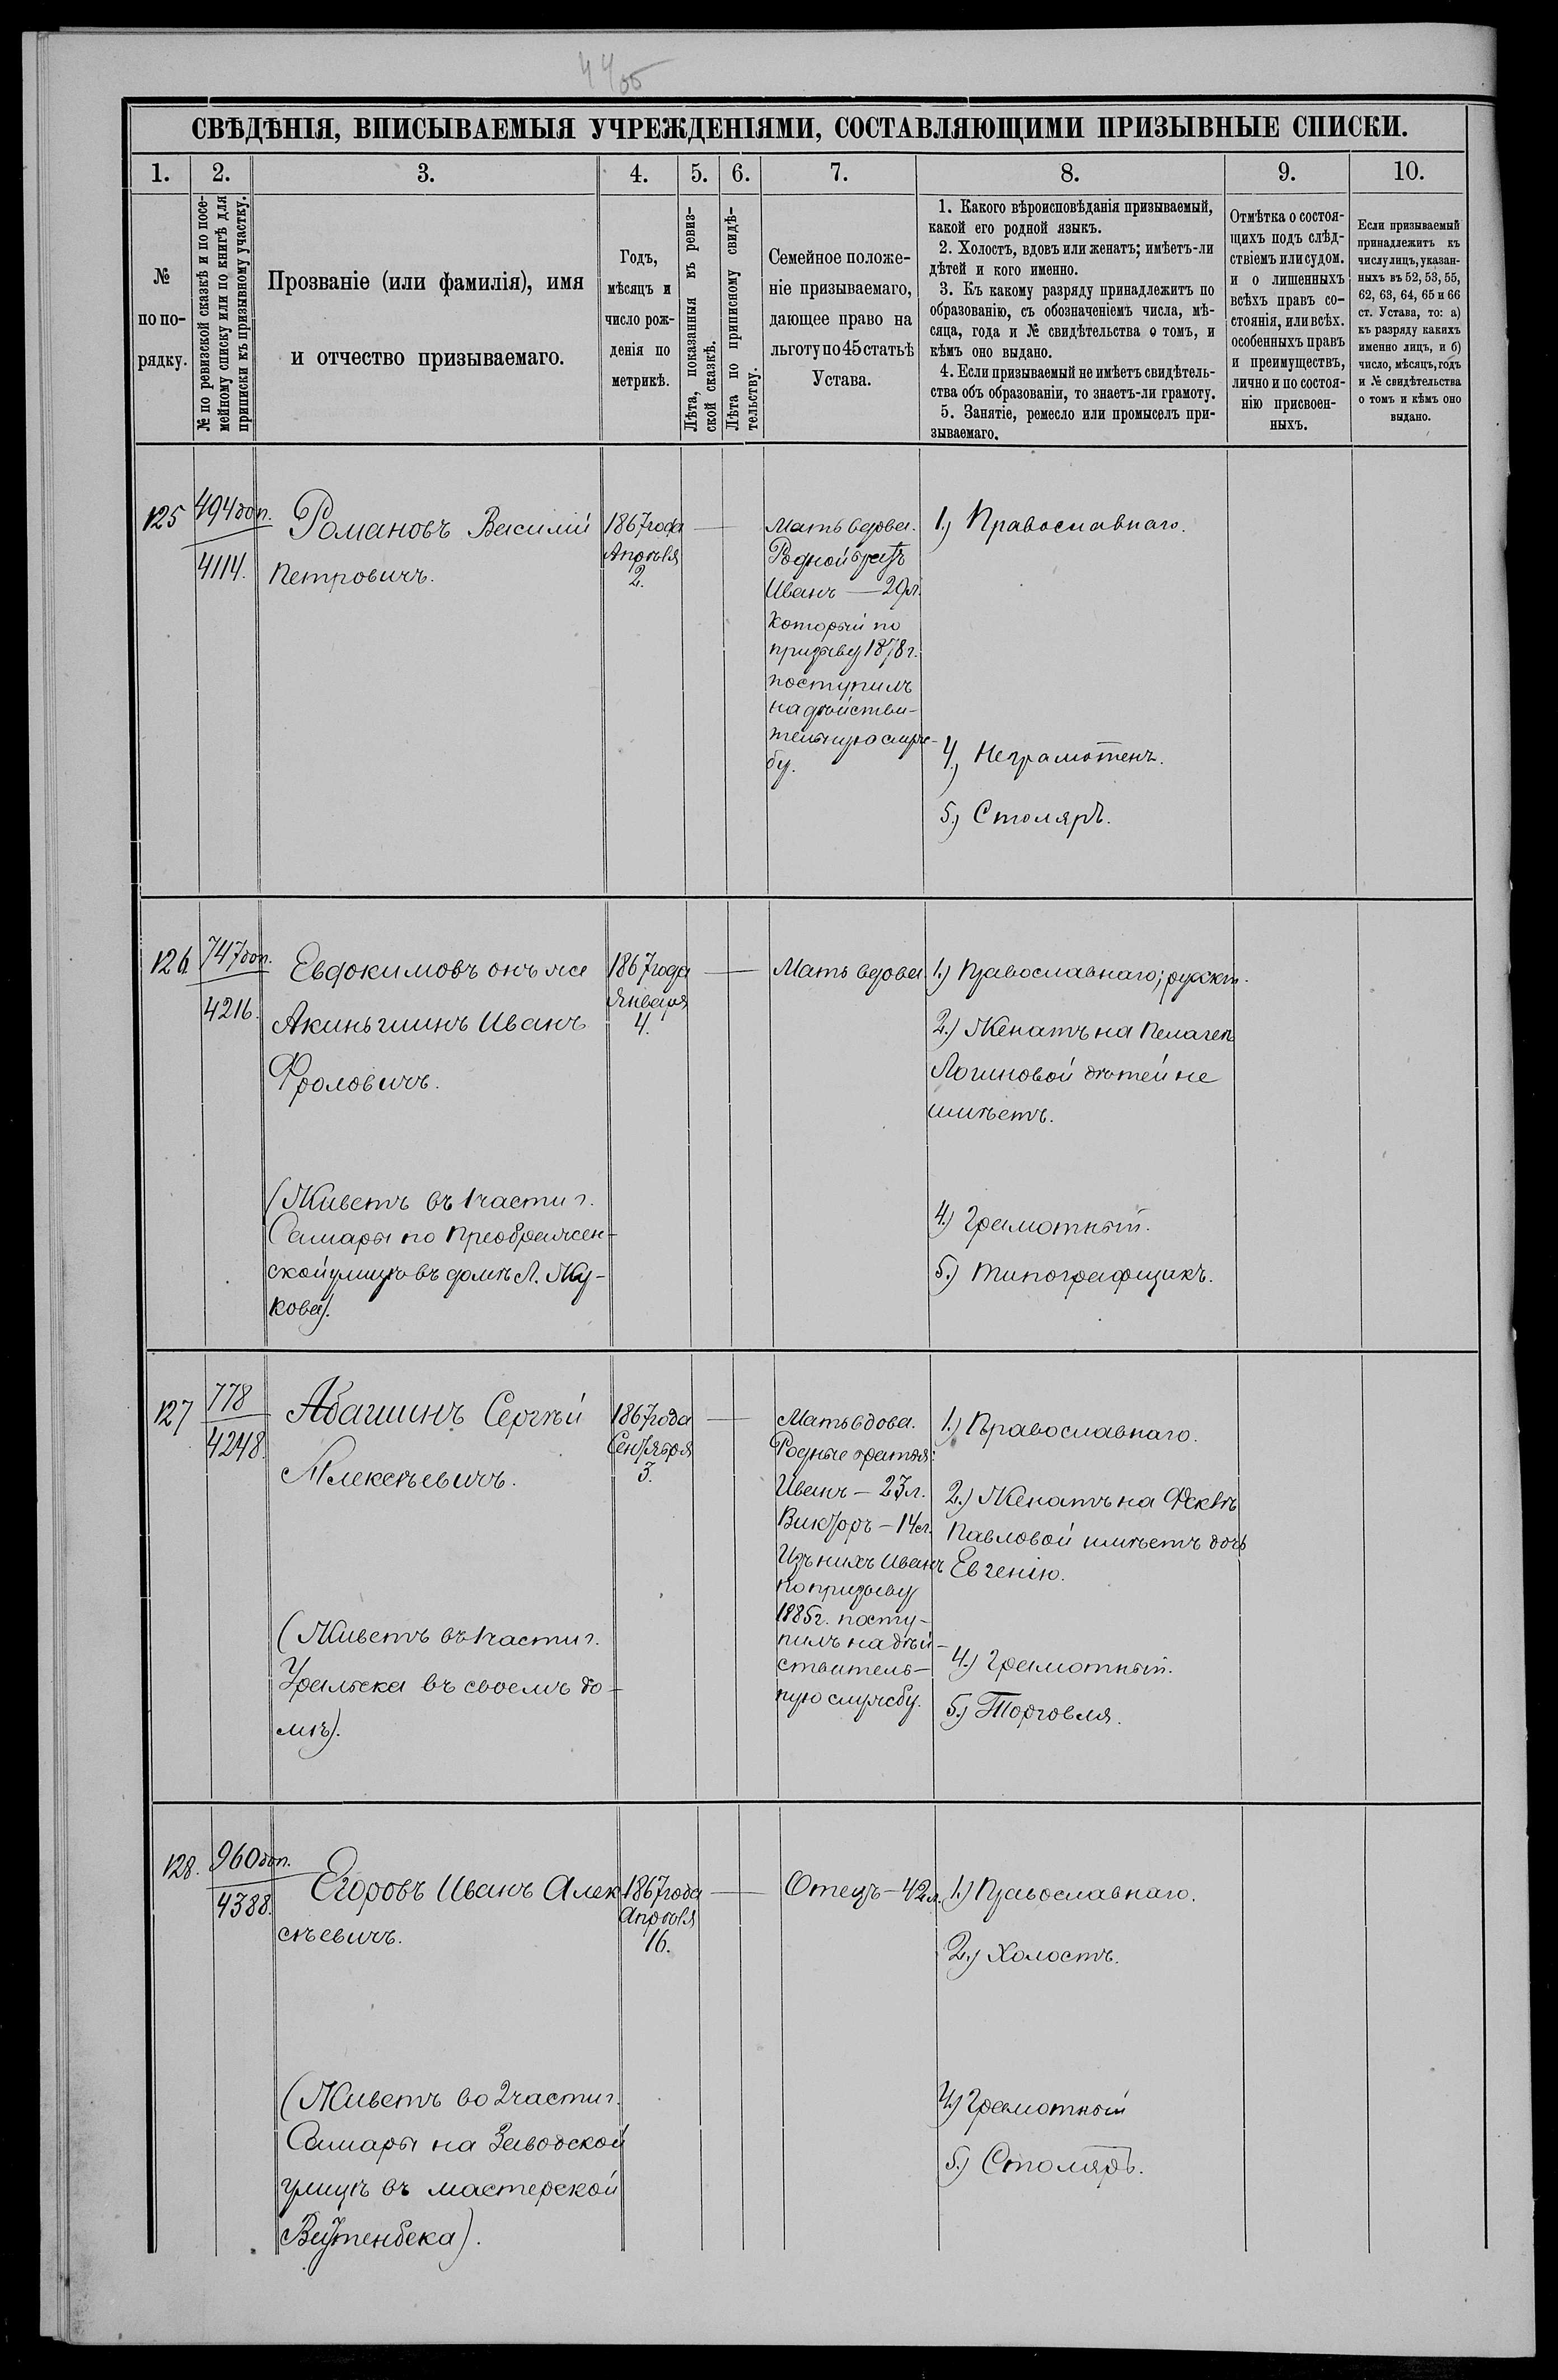 44об
СВѢДѢНІЯ, ВПИСЫВАЕМЫЯ УЧРЕЖДЕНІЯМИ, СОСТАВЛЯЮЩИМИ ПРИЗЫВНЫЕ СПИСКИ.
1. 2. 3. 4. 5. 6. 7. 8. 9. 10.
№
по по-
рядку.
№ по ревизской сказкѣ и по посе-
мейному списку или по книгѣ для
приписки къ призывному участку.
Прозваніе (или фамилія), имя
и отчество призываемаго.
Годъ,
мѣсяцъ и
число рож-
денія по
метрикѣ.
Лѣта, показанныя въ ревиз-
ской сказкѣ.
Лѣта по приписному свидѣ-
тельству.
Семейное положе-
ніе призываемаго,
дающее право на
льготу по 45 статьѣ
Устава.
1. Какого вѣроисповѣданія призываемый,
какой его родной языкъ.
2. Холостъ, вдовъ или женатъ; имѣетъ-ли
дѣтей и кого именно.
3. Къ какому разряду принадлежитъ по
образованію, съ обозначеніемъ числа, мѣ-
сяца, года и № свидѣтельства о томъ, и
кѣмъ оно выдано.
4. Если призываемый не имѣетъ свидѣтель-
ства объ образованіи, то знаетъ-ли грамоту.
5. Занятіе, ремесло или промыселъ при-
зываемаго.
Отмѣтка о состоя-
щихъ подъ слѣд-
ствіемъ или судом.
и о лишенныхъ
всѣхъ правъ со-
стоянія, или всѣх.
особенныхъ правъ
и преимуществъ,
лично и по состоя-
нію присвоен-
ныхъ.
Если призываемый
принадлежитъ къ
числу лицъ, указан-
ныхъ въ 52, 53, 55,
62, 63, 64, 65 и 66
ст. Устава, то: а)
къ разряду какихъ
именно лицъ, и б)
число, мѣсяцъ, годъ
и № свидѣтельства
о томъ и кѣмъ оно
выдано.
125
494 доп.
4114.
Романовъ Василій
Петровичъ.
1867 года
Апрѣля
2.
Мать вдова.
Родной братъ
Иванъ — 29 л.
который по
призыву 1878 г.
поступилъ
на дѣйстви-
тельную служ-
бу.
1.) Православнаго.
4.) Неграмотенъ.
5.) Столяръ.
126
747 доп.
4216.
Евдокимовъ онъ же
Акиньшинъ Иванъ
Фроловичъ.
(Живетъ въ 1 части г.
Самары по Преображен-
ской улицѣ въ домѣ Л. Жу-
кова).
1867 года
Января
4.
Мать вдова
1.) Православнаго; русск.
2.) Женатъ на Пелагеѣ
Логиновой дѣтей не
имѣетъ.
4.) Грамотный.
5.) Типографщикъ.
127
778
4248.
Абашинъ Сергѣй
Алексѣевичъ.
(Живетъ въ 1 части г.
Уральска въ своемъ до-
мѣ).
1867 года
Сентября
3.
Мать вдова.
Родные братья:
Иванъ — 23 л.
Викторъ — 14 л.
Изъ нихъ Иванъ
по призыву
1885 г. посту-
пилъ на дѣй-
ствитель-
ную службу.
1.) Православнаго.
2.) Женатъ на Феклѣ
Павловой имѣетъ дочь
Евгенію.
4.) Грамотный.
5.) Торговля.
128.
960 доп.
4388.
Егоровъ Иванъ Алек
сѣевичъ.
(Живетъ во 2 части г.
Самары на Заводской
улицѣ въ мастерской
1867 года
Апрѣля
16.
Отецъ — 42 л.
1.) Православнаго.
2.) Холостъ.
4.) Грамотный
5.) Столяръ.